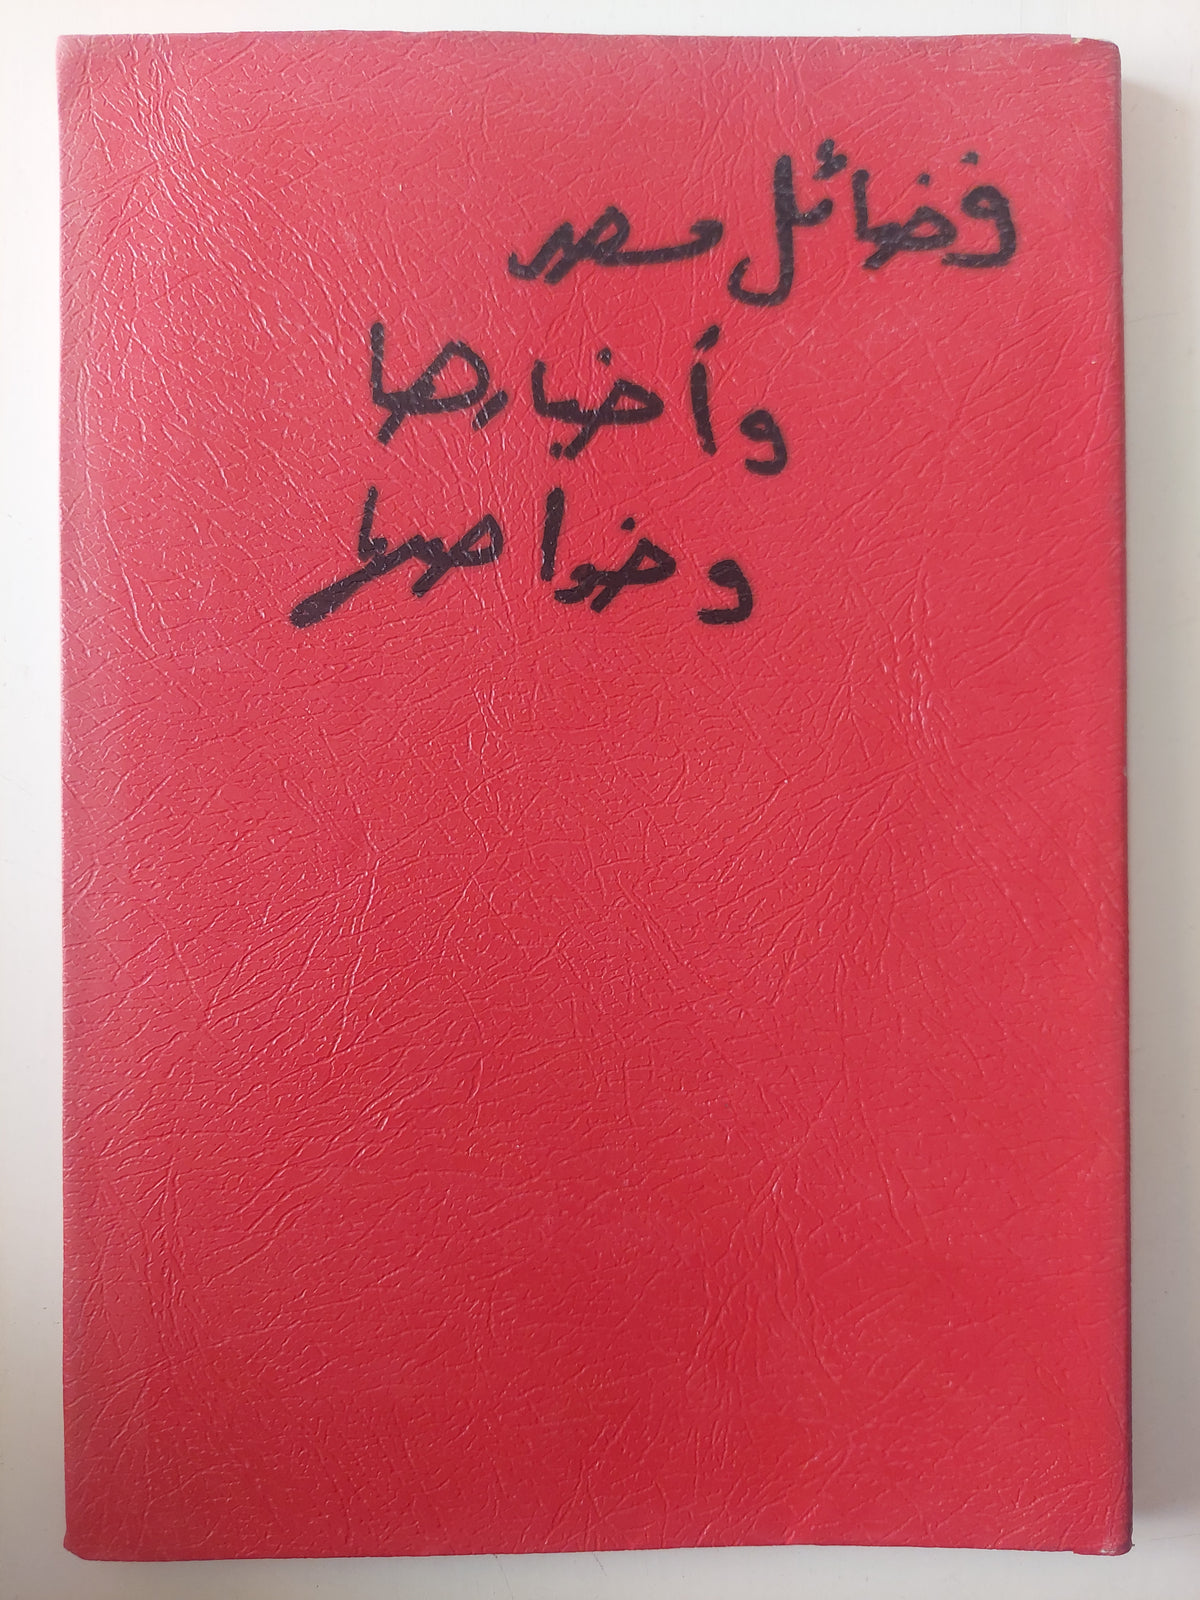 فضائل مصر
وأخبارها
وخواصها